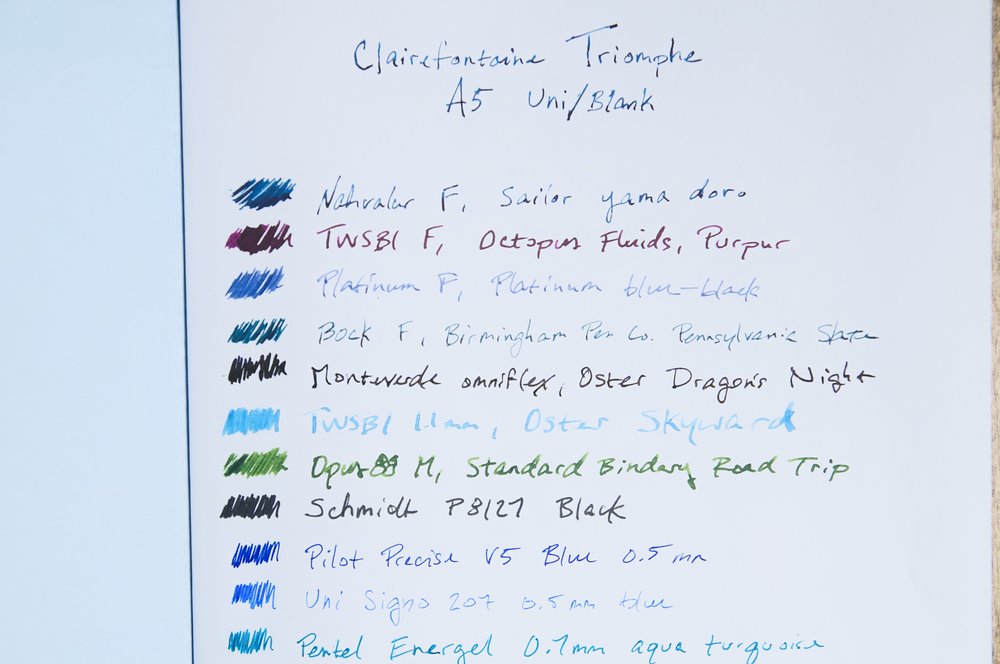 Clairefontaine Triomphe
A5 Uni/Blank
Nahvalur F, Sailor yama doro
TWSBI F, Octopus Fluids, Purpur
Platinum F, Platinum blue-black
Bock F, Birmingham Pen Co. Pennsylvania Slate
Monteverde omniflex, Oster Dragon's Night
TWSBI 1.1mm, Oster Skyward
Opus88 M, Standard Bindery Road Trip
Schmidt P8127 Black
Pilot Precise V5 Blue 0.5mm
Uni Signo 207 0.5mm blue
Pentel Energel 0.7mm aqua turquoise